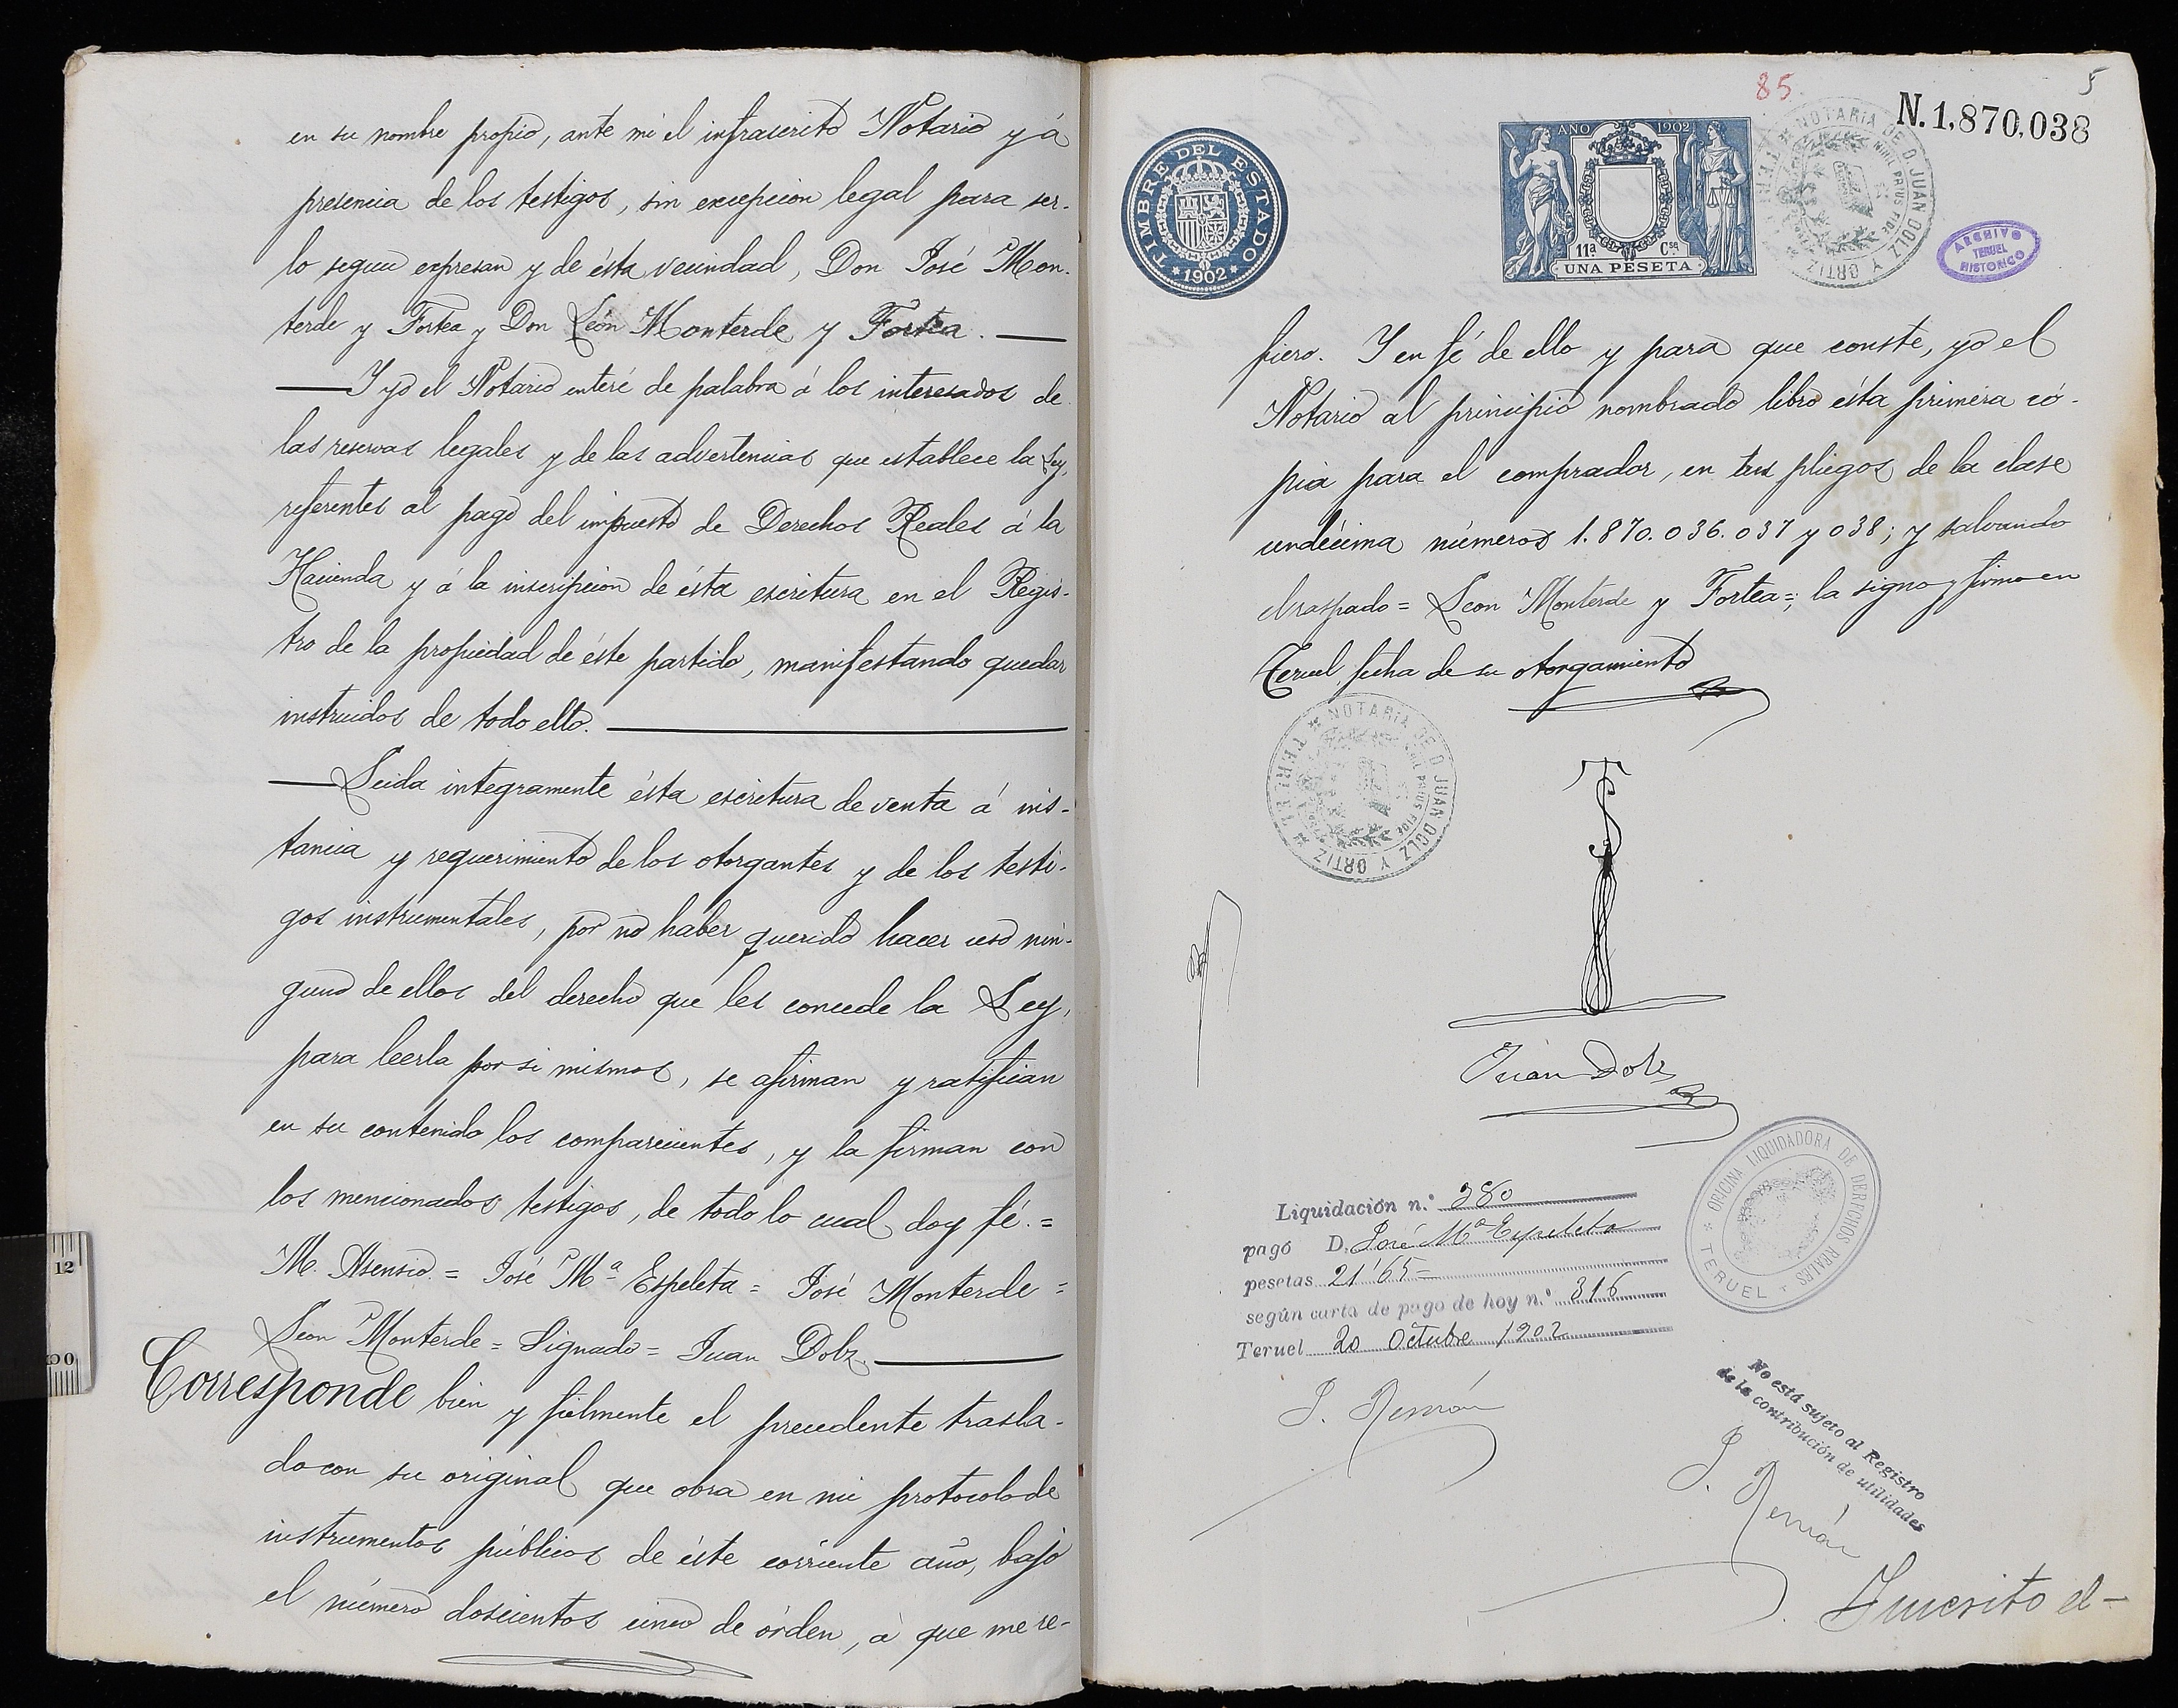 en su nombre propio, ante mí el infrascrito Notario y á
presencia de los testigos, sin excepcion legal para ser-
lo segun expresan y de ésta vecindad, Don José Mon-
terde y Fortea y Don León Monterde y Fortea.
Y yo el Notario enteré de palabra á los interesados de
las reservas legales y de las advertencias que establece la Ley,
referentes al pago del impuesto de Derechos Reales á la
Hacienda y á la inscripcion de ésta escritura en el Regis-
tro de la propiedad de éste partido, manifestando quedar
instruidos de todo ello.
Leida integramente ésta escritura de venta á ins-
tancia y requerimiento de los otorgantes y de los testi-
gos instrumentales, por no haber querido hacer uso nin-
guno de ellos del derecho que les concede la Ley,
para leerla por si mismos, se afirman y ratifican
en su contenido los comparecientes, y la firman con
los mencionados testigos, de todo lo cual doy fé. =
M. Asensio. = José Mª Espeleta = José Monterde =
Leon Monterde = Signado = Juan Dolz.
Corresponde bien y fielmente el precedente trasla-
do con su original que obra en mi protocolo de
instrumentos públicos de éste corriente año, bajo
el número doscientos cinco de órden, á que me re-
85
5
N.1,870,038
TIMBRE DEL ESTADO
1902
AÑO 1902
11ª Cse
UNA PESETA
NOTARIA DE D. JUAN DOLZ Y ORTIZ
TERUEL
NIHIL PRIUS FIDE
ARCHIVO
TERUEL
HISTORICO
fiero. Y en fé de ello y para que conste, yo el
Notario al principio nombrado libro ésta primera có-
pia para el comprador, en tres pliegos de la clase
undécima números 1.870.036.037 y 038; y salvando
el raspado = Leon Monterde y Fortea =; la signo y firmo en
Teruel, fecha de su otorgamiento
NOTARIA DE D. JUAN DOLZ Y ORTIZ
TERUEL
NIHIL PRIUS FIDE
Juan Dolz
OFICINA LIQUIDADORA DE DERECHOS REALES
TERUEL
Liquidación n.º 380
pagó D. José Mª Espeleta
pesetas 21'65=
según carta de pago de hoy n.º 316
Teruel 20 Octubre 1902
No está sujeto al Registro
de la contribución de utilidades
J. Remón
J. Remón
Inscrito el-
12